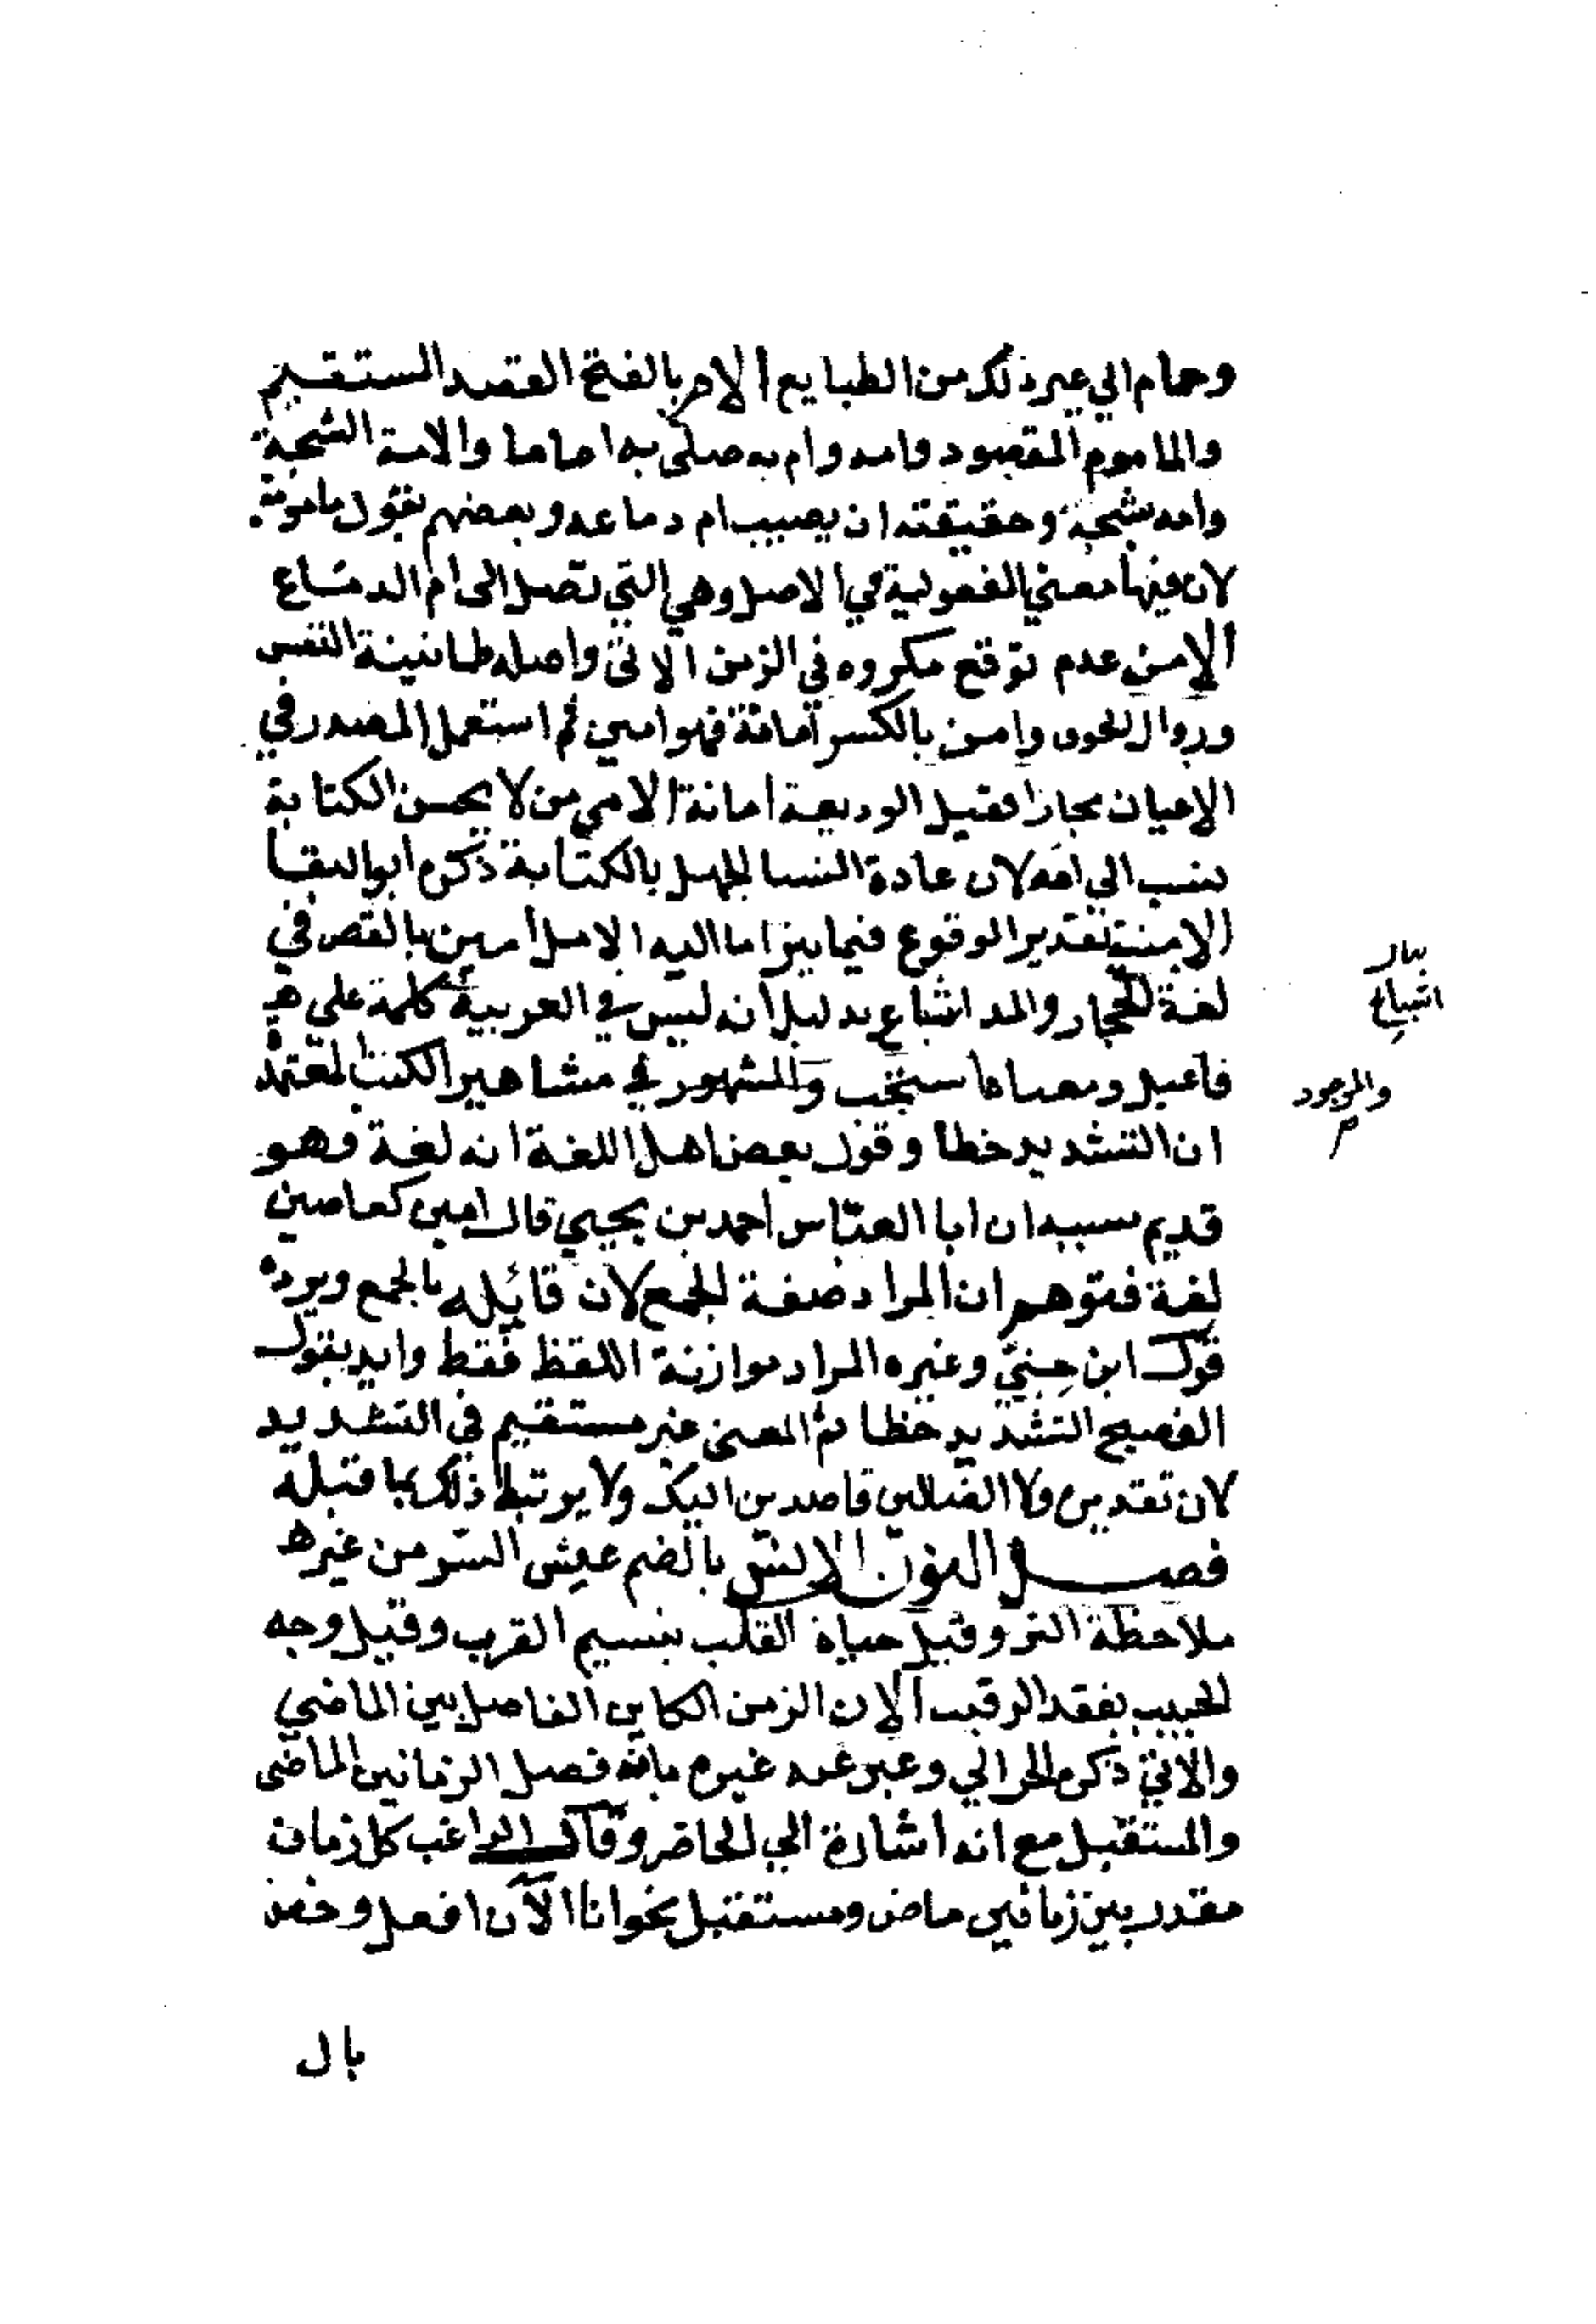 وحمام الي غير ذلك من الطبايع الام بالفتح القصد المستقيم
والماموم المقصود وامه وام به صلى به اماما والامة الشجة
وامه شجه وحقيقته ان يصيب ام دماغه وبعضهم يقول مامومة
لان فيها معني المفعولية في الاصل وهي التي تصل الى ام الدماغ
الامن عدم توقع مكروه في الزمن الاتي واصله طمانينة النفس
وزوال الخوف وامن بالكسر امانة فهو امين ثم استعمل المصدر في
الاعيان مجازا فقيل الوديعة امانة الامي من لا يحسن الكتابة
نسب الى امه لان عادة النسا الجهل بالكتابة ذكره ابو البقا
الامنية تقدير الوقوع فيما يترامااليه الامل امين بالقصر في
لغة الحجاز والمد اشباع بدليل انه ليس في العربية كلمة علي
فاعيل ومعناه استجب والمشهور في مشاهير الكتب المعتمد
ان التشديد خطا وقول بعض اهل اللغة انه لغة وهو
قديم سببه ان ابا العباس احمد بن يحيي قال امين كعاصين
لغة فتوهم ان المراد صفة الجمع لان قابله بالجمع ويرده
قول ابن جني وغيره المراد موازنة اللفظ فقط وايد بقول
الفصيح التشديد خطا ثم المعنى غير مستقيم في التشديد
لان تقديره ولا الضالين قاصدين اليك ولا يرتبط ذلك بما قبله
فصل النون الانس بالضم عيش السر من غير
ملاحظة البر وقيل حياة القلب بنسيم القرب وقيل وجه
الحبيب بفقد الرقيب الان الزمن الكاين الفاصل بين الماضي
والاتي ذكره الحرالي وعبر عنه غيره بانه فصل الزمانين الماضى
والمستقبل مع انه اشارة الي الحاضر وقال الراغب كل زمان
مقدر بين زمانين ماض ومستقبل نحو انا الآن افعل وخص
بال
بيان
اشباع
والموجود